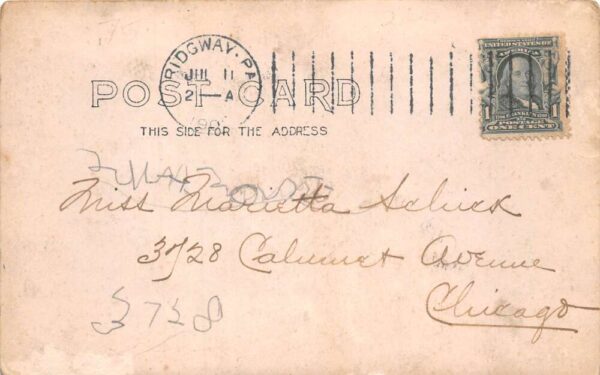 RIDGWAY. PA.
JUL 11
2 — A
190
POST CARD
THIS SIDE FOR THE ADDRESS
UNITED STATES OF
1 1
POSTAGE
ONE CENT
Miss Marietta Schick
3728 Calumet Avenue
Chicago
3728